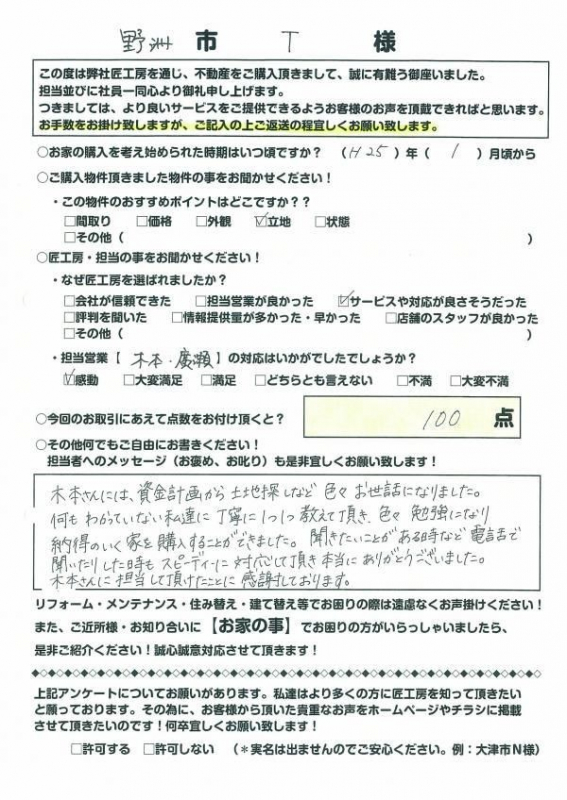 野洲 市 T 様
この度は弊社匠工房を通じ、不動産をご購入頂きまして、誠に有難う御座いました。
担当並びに社員一同心より御礼申し上げます。
つきましては、より良いサービスをご提供できるようお客様のお声を頂戴できればと思います。
お手数をお掛け致しますが、ご記入の上ご返送の程宜しくお願い致します。
○お家の購入を考え始められた時期はいつ頃ですか？ （H25）年（1）月頃から
○ご購入物件頂きました物件の事をお聞かせください！
・この物件のおすすめポイントはどこですか？？
□間取り □価格 □外観 ☑立地 □状態
□その他（ ）
○匠工房・担当の事をお聞かせください！
・なぜ匠工房を選ばれましたか？
□会社が信頼できた □担当営業が良かった ☑サービスや対応が良さそうだった
□評判を聞いた □情報提供量が多かった・早かった □店舗のスタッフが良かった
□その他（ ）
・担当営業【 木本・廣瀬 】の対応はいかがでしたでしょうか？
☑感動 □大変満足 □満足 □どちらとも言えない □不満 □大変不満
○今回のお取引にあえて点数をお付け頂くと？ 100 点
○その他何でもご自由にお書きください！
担当者へのメッセージ（お褒め、お叱り）も是非宜しくお願い致します！
木本さんには、資金計画から土地探しなど色々お世話になりました。
何もわかっていない私達に丁寧に1つ1つ教えて頂き、色々勉強になり
納得のいく家を購入することができました。聞きたいことがある時など電話で
聞いたりした時もスピーディーに対応して頂き本当にありがとうございました。
木本さんに担当して頂けたことに感謝しております。
リフォーム・メンテナンス・住み替え・建て替え等でお困りの際は遠慮なくお声掛けください！
また、ご近所様・お知り合いに【お家の事】でお困りの方がいらっしゃいましたら、
是非ご紹介ください！誠心誠意対応させて頂きます！
上記アンケートについてお願いがあります。私達はより多くの方に匠工房を知って頂きたい
と願っております。その為に、お客様から頂いた貴重なお声をホームページやチラシに掲載
させて頂きたいのです！何卒宜しくお願い致します！
□許可する □許可しない （＊実名は出ませんのでご安心ください。例：大津市N様）